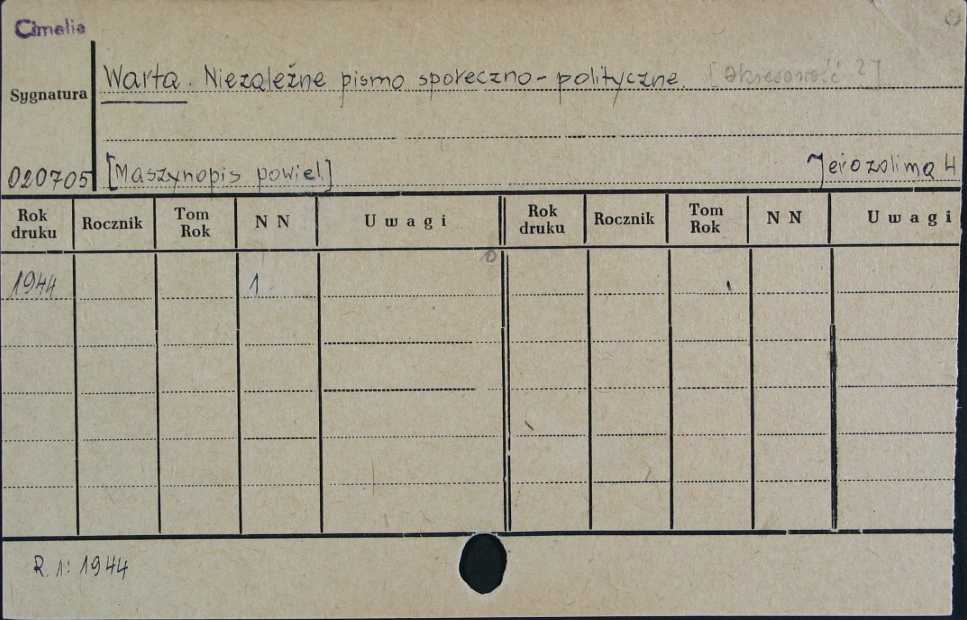 Cimelia
Warta. Niezależne pismo społeczno-polityczne. [Okresowość ?]
Sygnatura
020705 [Maszynopis powiel] Jerozolima 4
Rok druku Rocznik Tom Rok N N Uwagi Rok druku Rocznik Tom Rok N N Uwagi
1944 1
R. 1: 1944